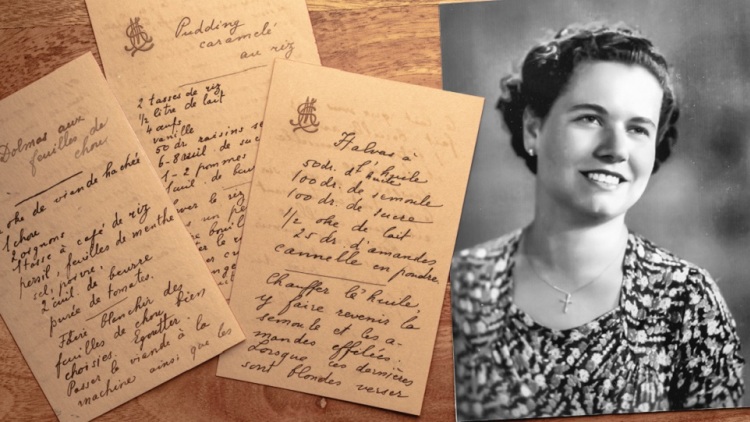 Dolmas aux
feuilles de
chou
oke de viande hachée
1 chou
2 oignons
1 tasse à café de riz
persil, feuilles de menthe
sel, poivre
2 cuil. de beurre
purée de tomates.
Faire blanchir des
feuilles de chou bien
choisies. Egoutter.
Passer la viande à la
machine ainsi que les
Pudding
caramelé
au riz
2 tasses de riz
½ litre de lait
4 œufs
vanille
50 dr. raisins
6-8 cuil. de suc
1-2 pommes
1 cuil. de
le riz
Halva à
l'huile
50 dr. d'huile
100 dr. de semoule
100 dr. de sucre
½ oke de lait
25 dr. d'amandes
cannelle en poudre.
Chauffer l'huile
y faire revenir la
semoule et les a-
mandes effilées.
Lorsque ces dernières
sont blondes verser